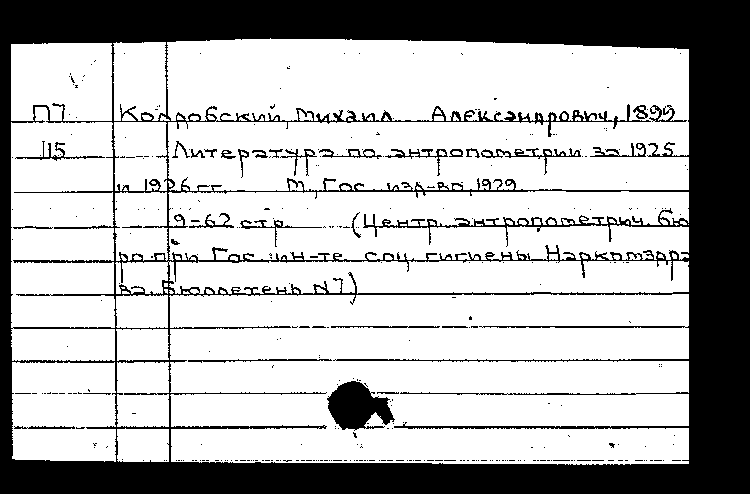 П7 Колдобский, Михаил Александрович, 1899
П5 Литература по антропометрии за 1925
и 1926 гг. М., Гос. изд-во, 1929.
9-62 стр. (Центр. антропометрич. бю
ро при Гос. ин-те соц. гигиены Наркомздра
ва. Бюллетень N7)